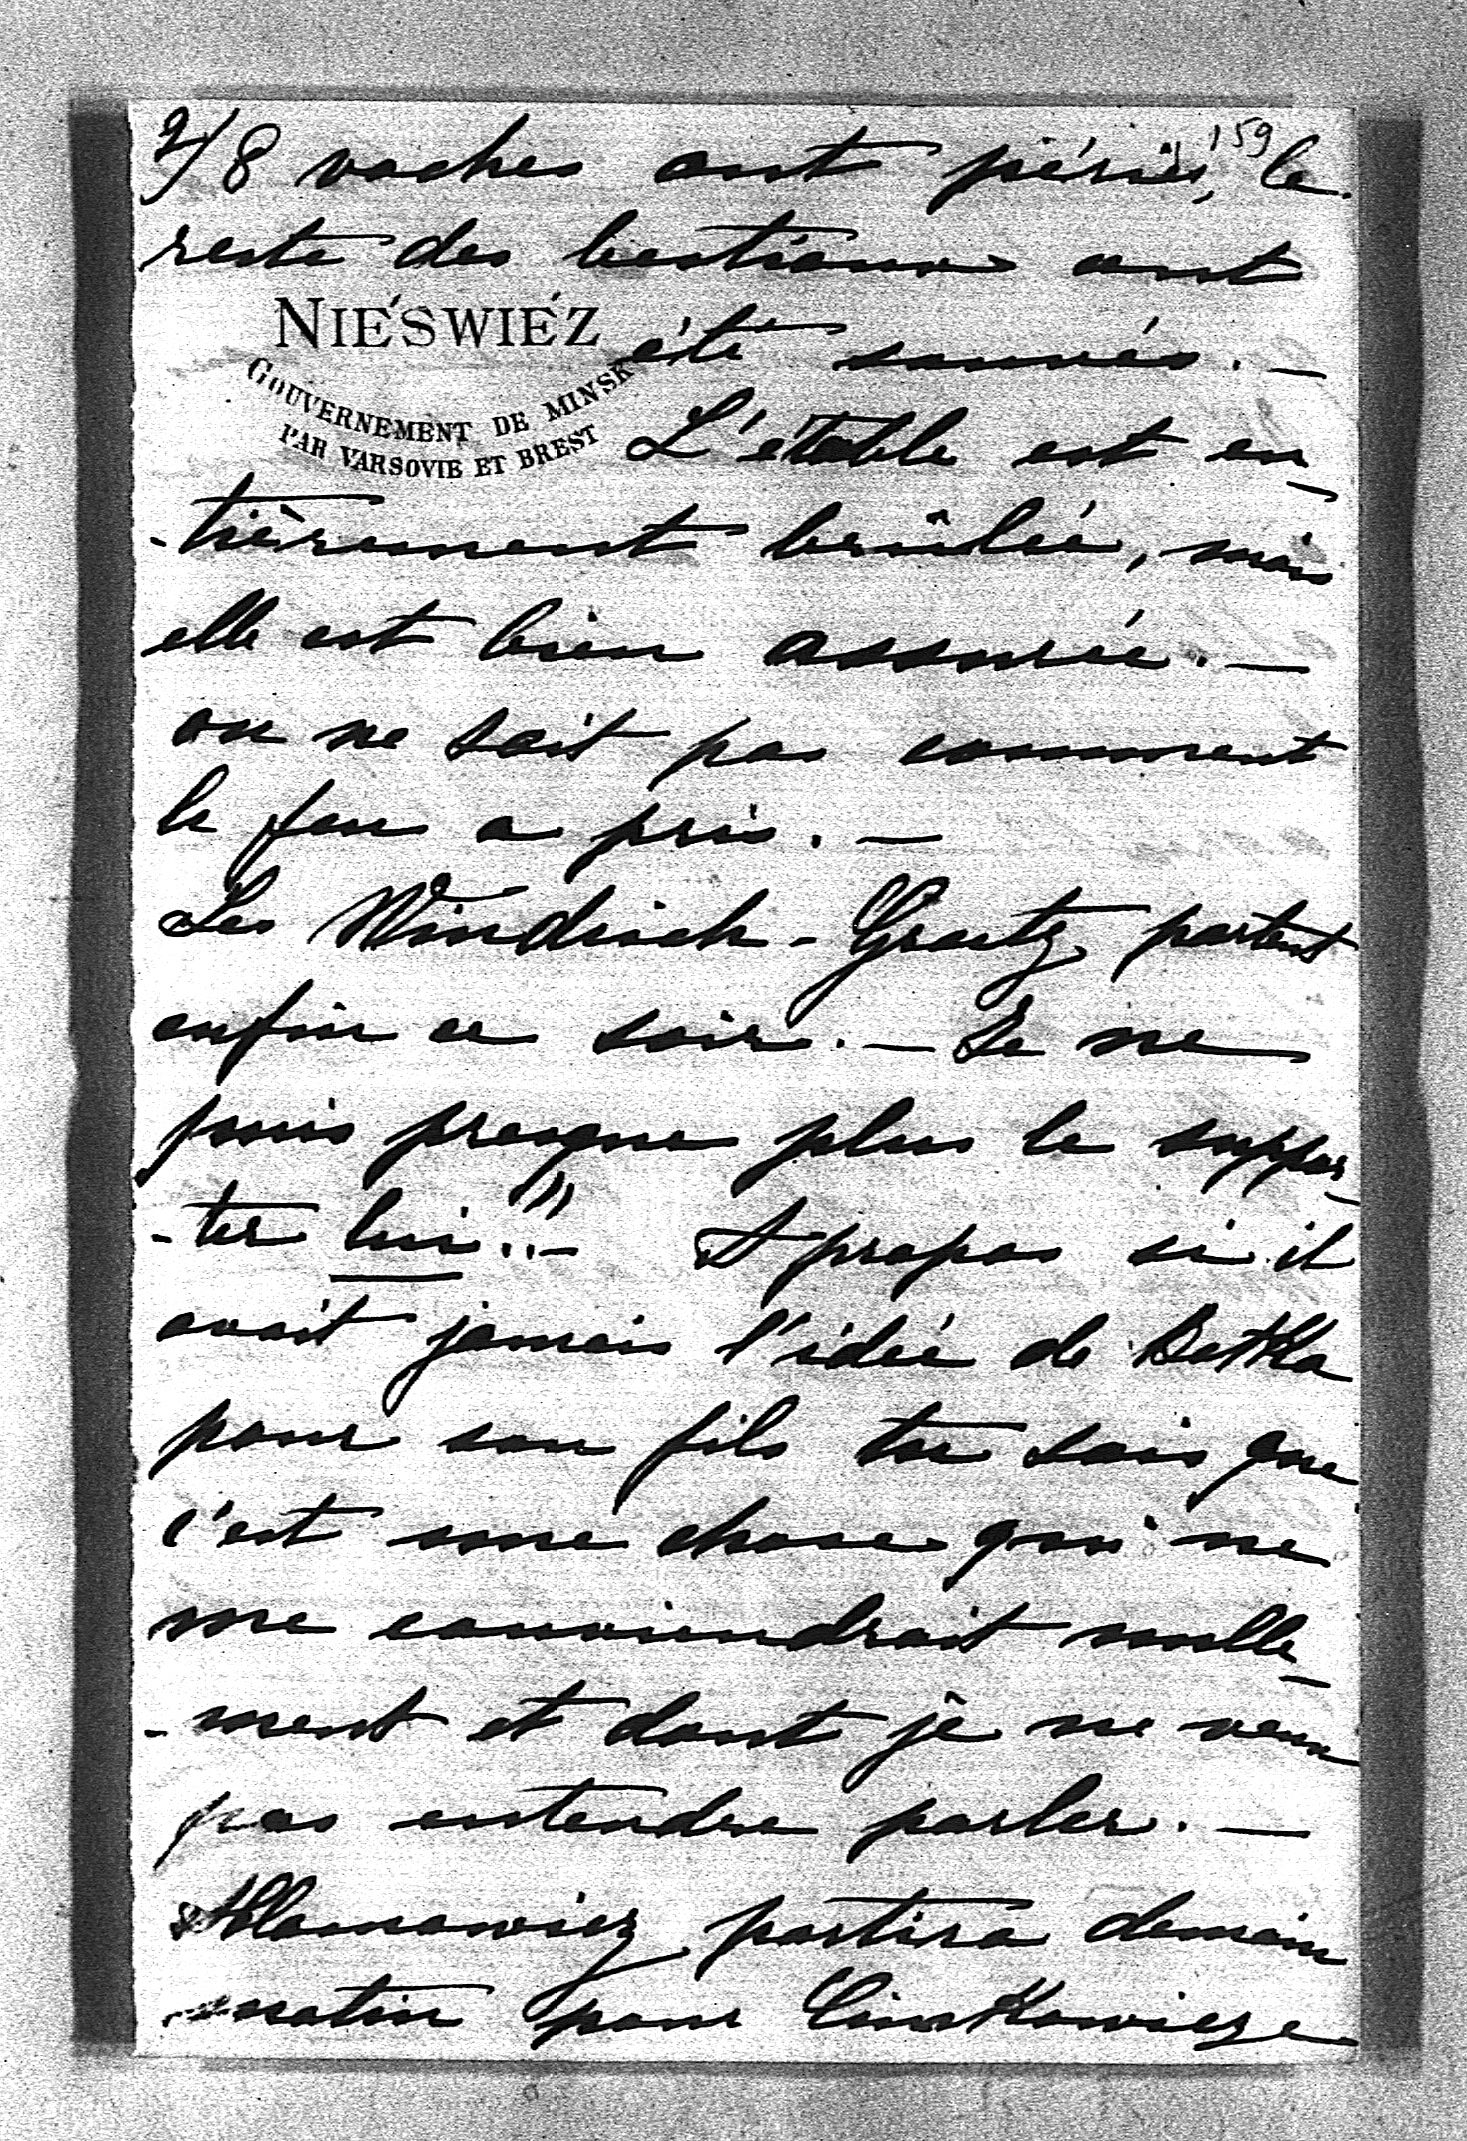 2/ 8 vaches ont péries, le
159
reste des bestiaux ont
NIÉSWIÉZ
GOUVERNEMENT DE MINSK
PAR VARSOVIE ET BREST
été sauvés. —
L'étable est en-
-tièrement brûlée, mais
elle est bien assurée. —
on ne sait pas comment
le feu a pris. —
Les Windisch-Graetz partent
enfin ce soir. — Je ne
puis presque plus le suppor-
-ter lui..!! — A propos si il
avait jamais l'idée de Betka
pour son fils tu sais que
c'est une chose qui ne
me conviendrait nulle-
-ment et dont je ne veux
pas entendre parler. —
partira demain
matin pour